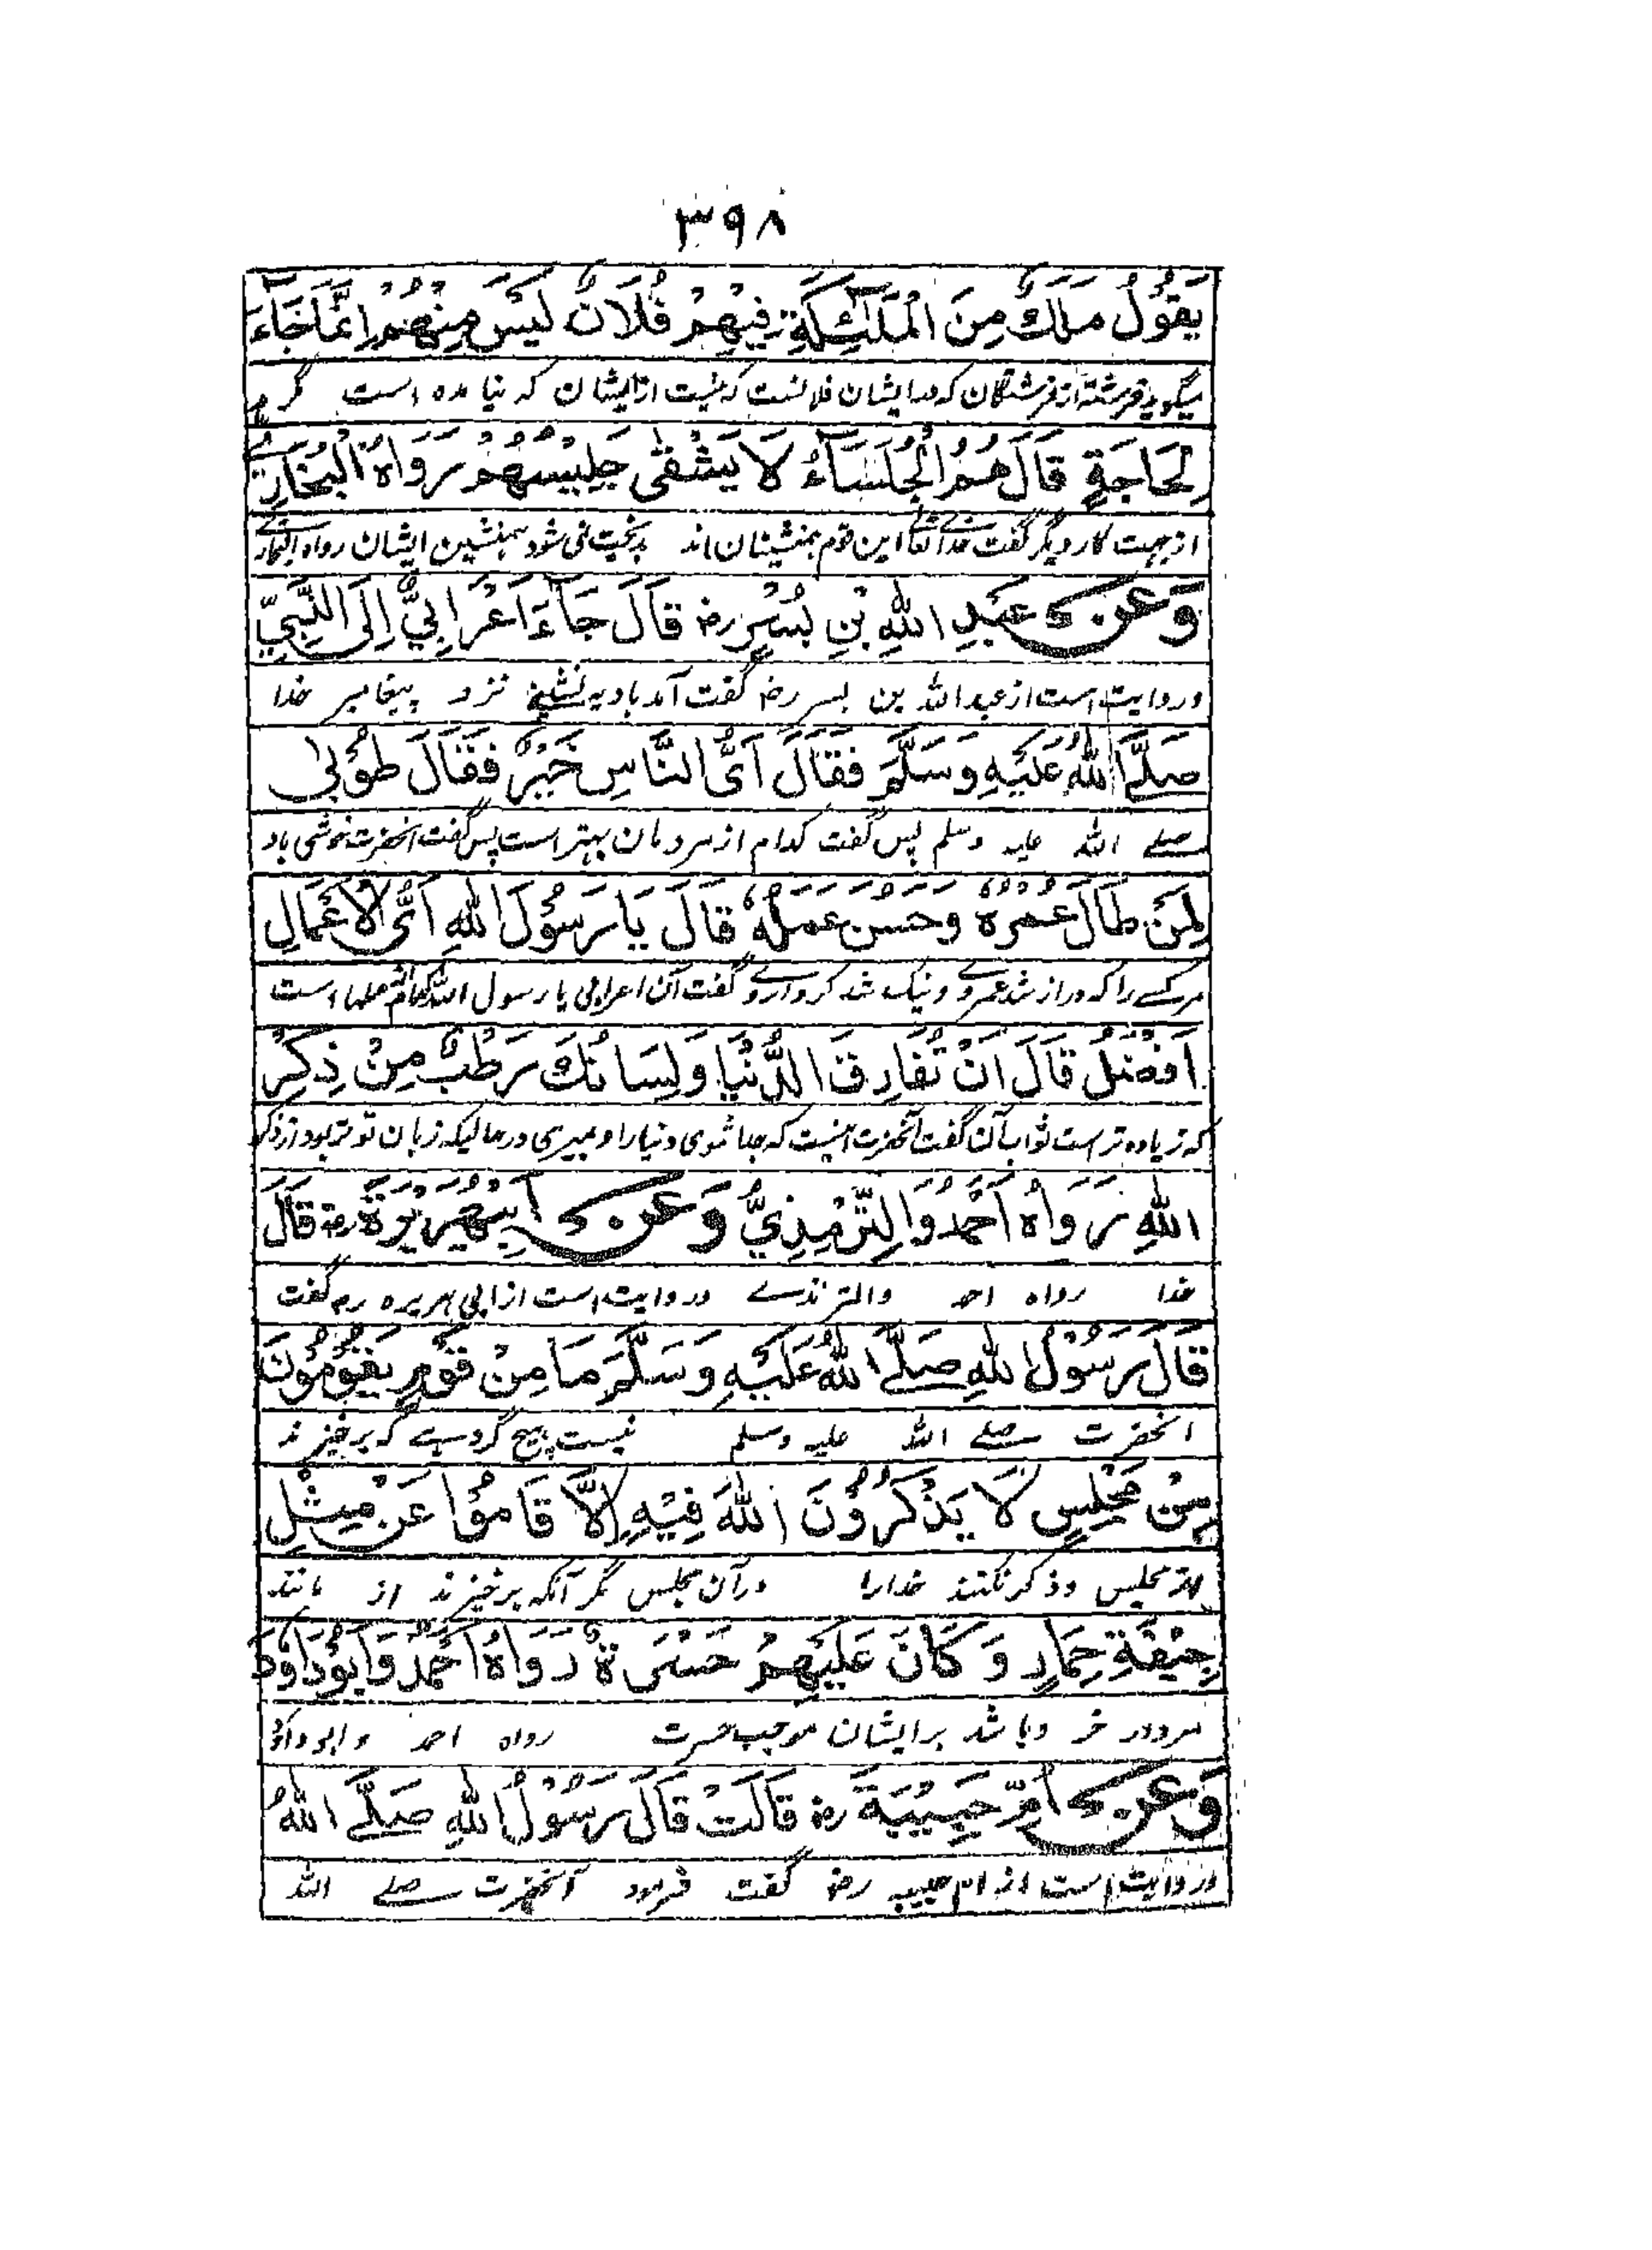 ٣٩٨
يَقُوْلُ مَلَكٌ مِنَ الْمَلٰٓئِكَةِ فِيْهِمْ فُلَانٌ لَيْسَ مِنْهُمْ اِنَّمَا جَآءَ
میگوید فرشتهٔ از فرشتگان که در ایشان فلانست که نیست از ایشان که نیامده است مگر
لِحَاجَةٍ قَالَ هُمُ الْجُلَسَآءُ لَا يَشْقٰى جَلِيْسُهُمْ رَوَاهُ الْبُخَارِيُّ
از جهت کار دیگر گفت خدا تعالی این قوم همنشینان اند بدبخت نمی شود همنشین ایشان رواه البخاری
وَعَنْ عَبْدِ اللهِ بْنِ بُسْرٍ رض قَالَ جَآءَ اَعْرَابِيٌّ اِلَى النَّبِيِّ
و روایت است از عبد الله بن بسر رض گفت آمد بادیه نشینی نزد پیغامبر خدا
صَلَّے اللهُ عَلَيْهِ وَسَلَّمَ فَقَالَ اَىُّ النَّاسِ خَيْرٌ فَقَالَ طُوْبٰى
صلے الله علیه وسلم پس گفت کدام از مردمان بهتر است پس گفت آنحضرت خوشی باد
لِمَنْ طَالَ عُمْرُهٗ وَحَسُنَ عَمَلُهٗ قَالَ يَا رَسُوْلَ اللهِ اَىُّ الْاَعْمَالِ
مر کسے را که دراز شد عمر وے و نیک شد کردار وے گفت آن اعرابی یا رسول الله کدام عملها است
اَفْضَلُ قَالَ اَنْ تُفَارِقَ الدُّنْيَا وَلِسَانُكَ رَطْبٌ مِنْ ذِكْرِ
که زیاده تر است ثواب آن گفت آنحضرت اینست که جدا شوی دنیا را و بمیری در حالیکه زبان تو تر بود از ذکر
اللهِ رَوَاهُ اَحْمَدُ وَالتِّرْمِذِيُّ وَعَنْ اَبِيْ هُرَيْرَةَ رض قَالَ
خدا رواه احمد والترمذے و روایت است از ابی هریره رض گفت
قَالَ رَسُوْلُ اللهِ صَلَّے اللهُ عَلَيْهِ وَسَلَّمَ مَا مِنْ قَوْمٍ يَقُوْمُوْنَ
آنحضرت صلے الله علیه وسلم نیست هیچ گروہے که برخیزند
مِنْ مَجْلِسٍ لَا يَذْكُرُوْنَ اللهَ فِيْهِ اِلَّا قَامُوْا عَنْ مِثْلِ
از مجلس و ذکر نکنند خدا را در آن مجلس مگر آنکه برخیزند از مانند
جِيْفَةِ حِمَارٍ وَكَانَ عَلَيْهِمْ حَسْرَةً رَوَاهُ اَحْمَدُ وَاَبُوْدَاوٗدَ
مردار خر و باشد بر ایشان موجب حسرت رواه احمد و ابو داؤد
وَعَنْ اُمِّ حَبِيْبَةَ رض قَالَتْ قَالَ رَسُوْلُ اللهِ صَلَّے اللهُ
و روایت است از ام حبیبه رض گفت فرمود آنحضرت صلے الله